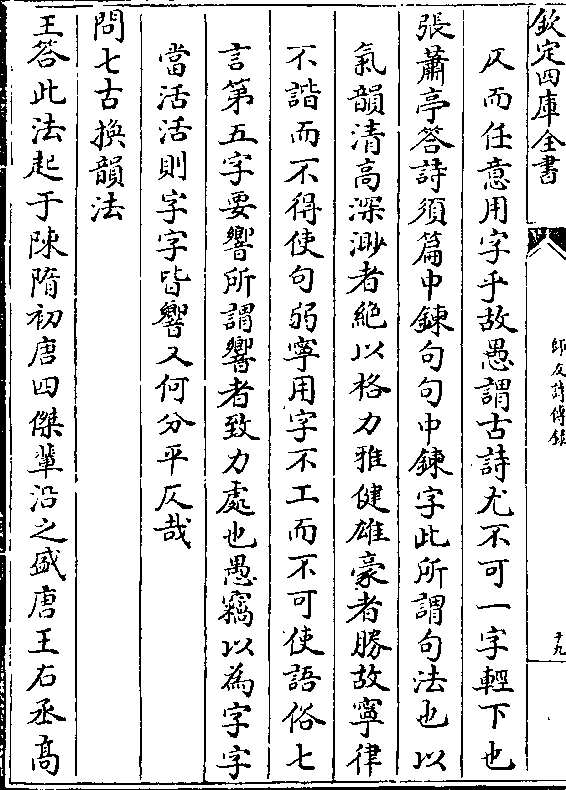 欽定四庫全書
師友詩傳錄
十九
仄而任意用字乎故愚謂古詩尤不可一字輕下也
張蕭亭答詩須篇中鍊句句中鍊字此所謂句法也以
氣韻清高深渺者絶以格力雅健雄豪者勝故寧律
不諧而不得使句弱寧用字不工而不可使語俗七
言第五字要響所謂響者致力處也愚竊以為字字
當活活則字字皆響又何分平仄哉
問七古換韻法
王答此法起于陳隋初唐四傑輩沿之盛唐王右丞髙